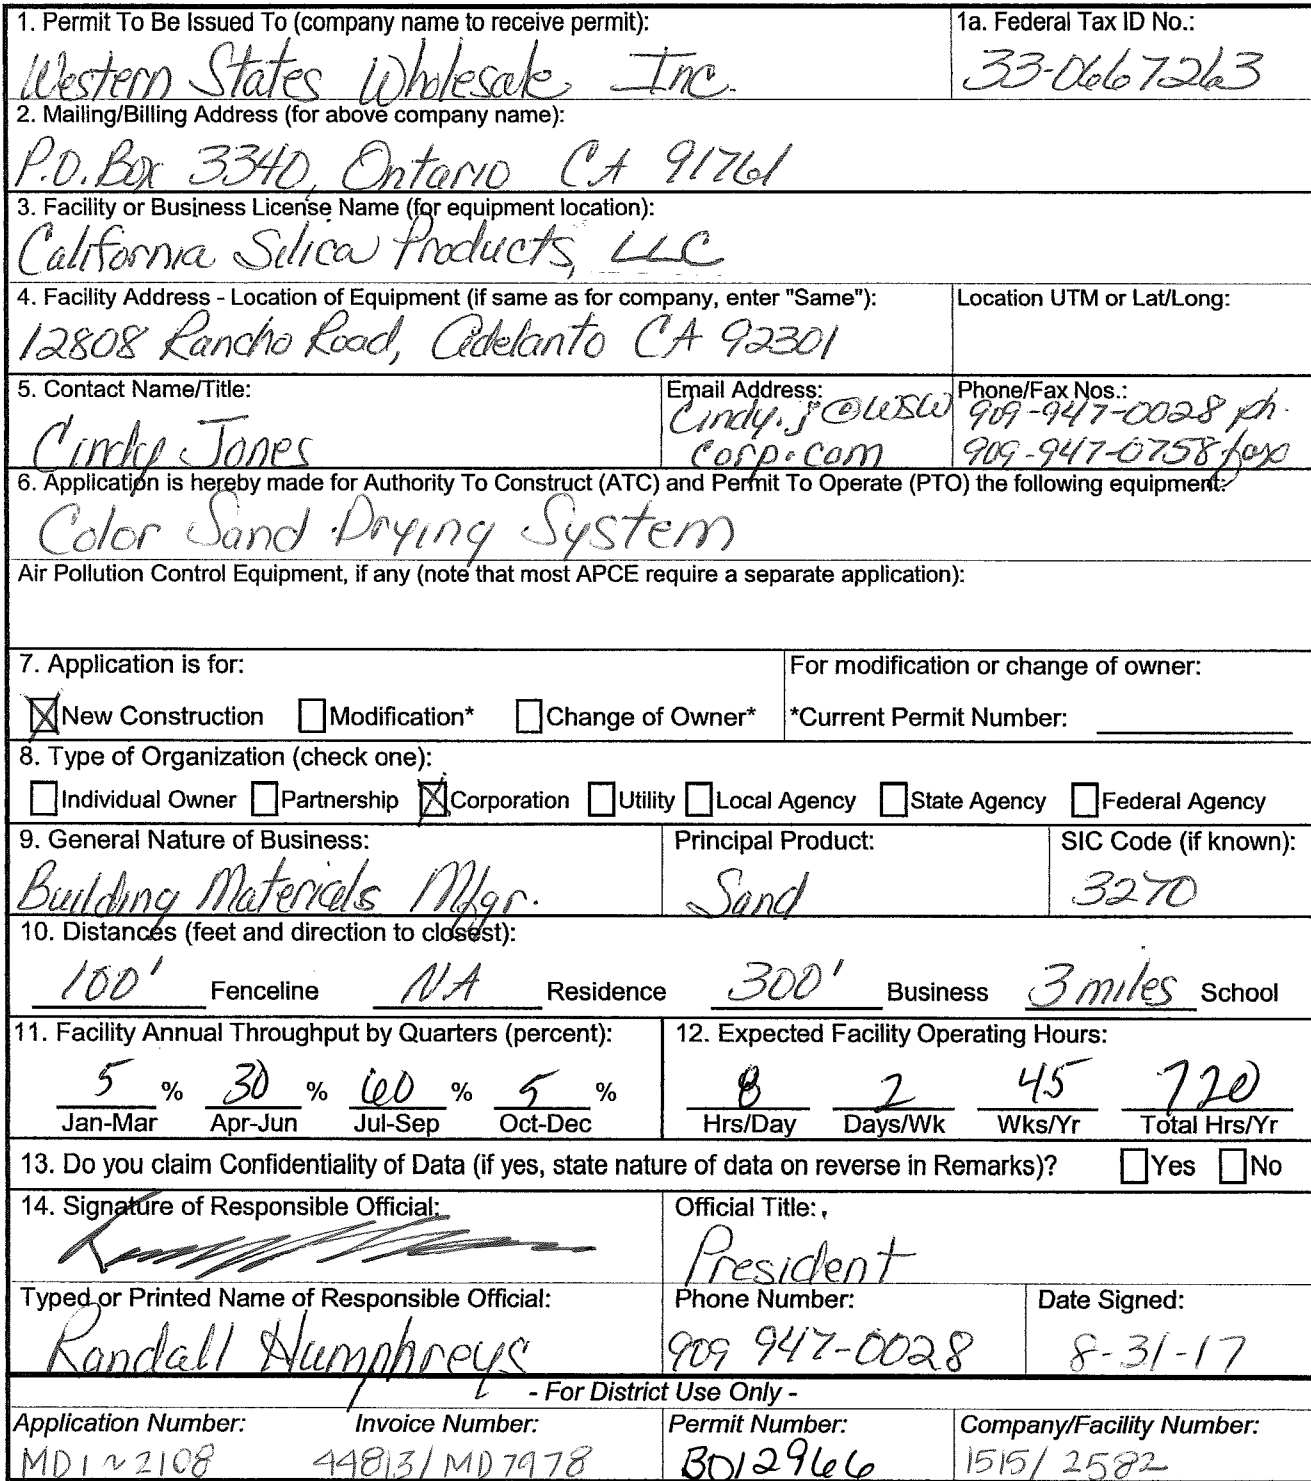 1. Permit To Be Issued To (company name to receive permit):
Western States Wholesale, Inc.
1a. Federal Tax ID No.:
33-0667263
2. Mailing/Billing Address (for above company name):
P.O. Box 3340, Ontario CA 91761
3. Facility or Business License Name (for equipment location):
California Silica Products, LLC
4. Facility Address - Location of Equipment (if same as for company, enter "Same"):
12808 Rancho Road, Adelanto CA 92301
Location UTM or Lat/Long:
5. Contact Name/Title:
Cindy Jones
Email Address:
Cindy.j@WSW
corp.com
Phone/Fax Nos.:
909-947-0028 ph.
909-947-0758 fax
6. Application is hereby made for Authority To Construct (ATC) and Permit To Operate (PTO) the following equipment:
Color Sand Drying System
Air Pollution Control Equipment, if any (note that most APCE require a separate application):
7. Application is for:
For modification or change of owner:
New Construction Modification* Change of Owner* *Current Permit Number:
8. Type of Organization (check one):
Individual Owner Partnership Corporation Utility Local Agency State Agency Federal Agency
9. General Nature of Business:
Building Materials Mfgr.
Principal Product:
Sand
SIC Code (if known):
3270
10. Distances (feet and direction to closest):
100' Fenceline NA Residence 300' Business 3 miles School
11. Facility Annual Throughput by Quarters (percent):
5 % 30 % 60 % 5 %
Jan-Mar Apr-Jun Jul-Sep Oct-Dec
12. Expected Facility Operating Hours:
8 2 45 720
Hrs/Day Days/Wk Wks/Yr Total Hrs/Yr
13. Do you claim Confidentiality of Data (if yes, state nature of data on reverse in Remarks)? Yes No
14. Signature of Responsible Official:
Official Title:
President
Typed or Printed Name of Responsible Official:
Randall Humphreys
Phone Number:
909 947-0028
Date Signed:
8-31-17
- For District Use Only -
Application Number: Invoice Number: Permit Number: Company/Facility Number:
44813/MD7978 B012966 1515/2582